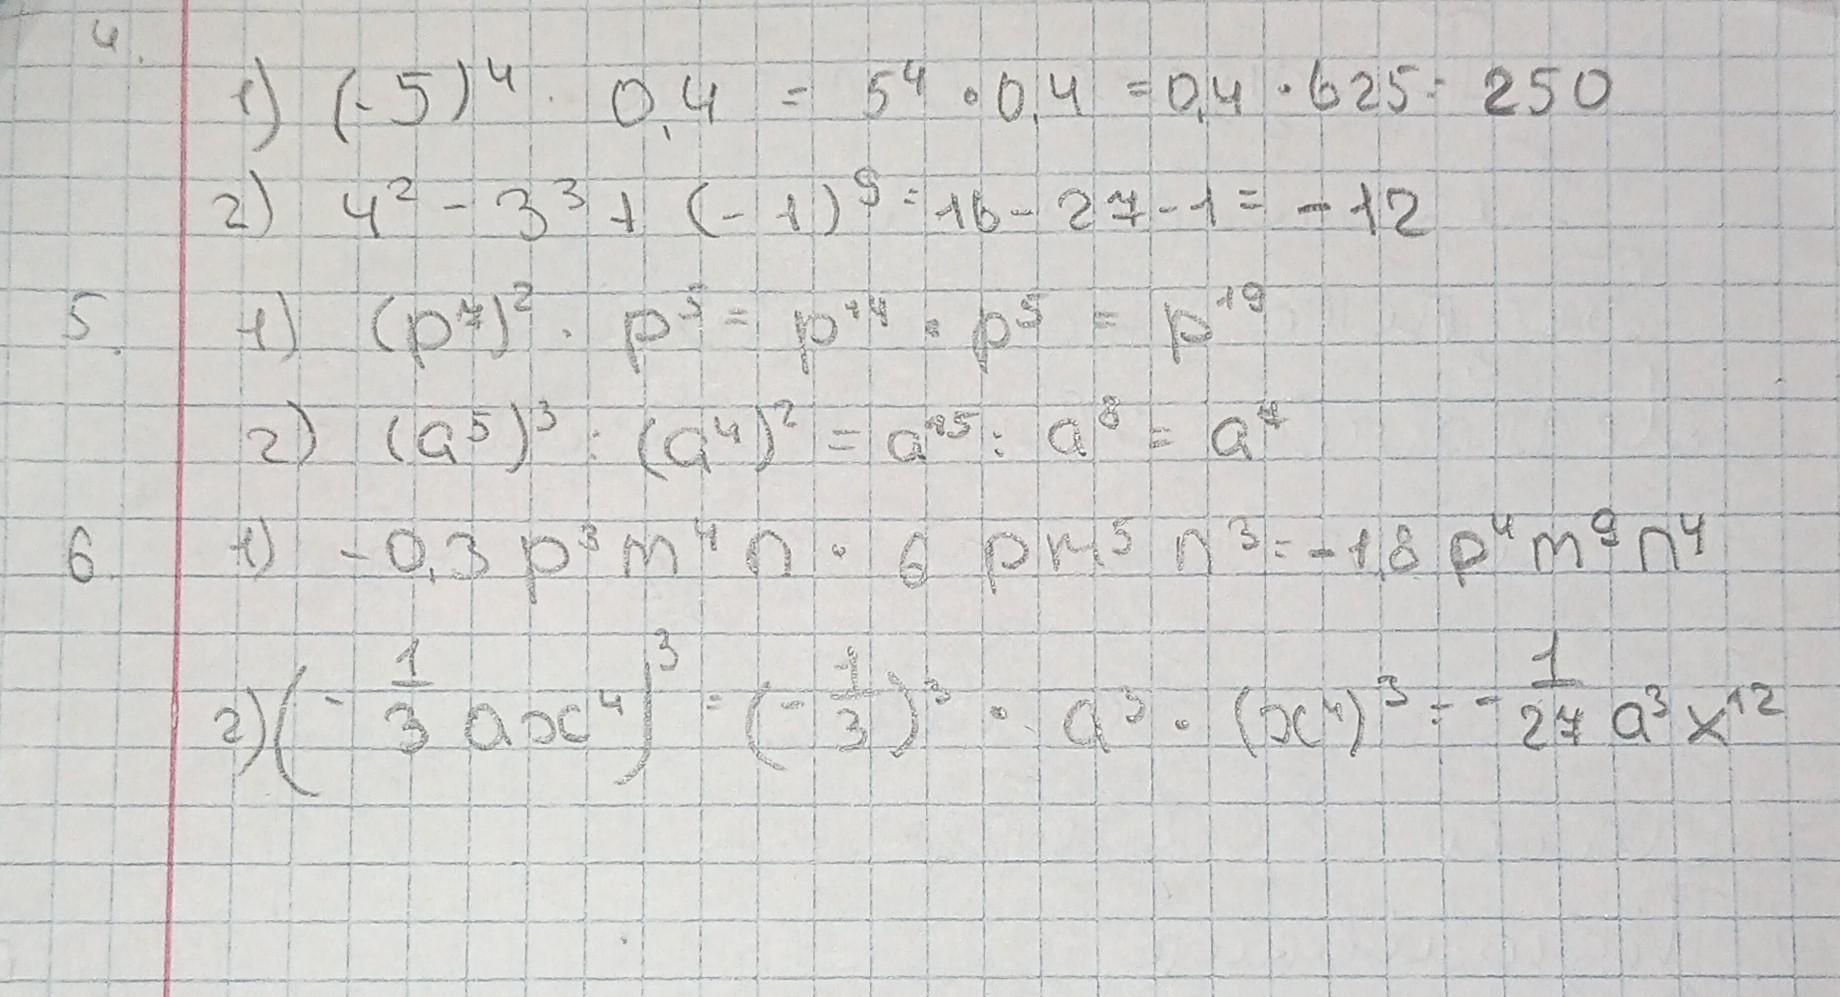 4.
1) (-5)⁴ · 0,4 = 5⁴ · 0,4 = 0,4 · 625 = 250
2) 4² - 3³ + (-1)⁵ = 16 - 27 - 1 = -12
5. 1) (p⁷)² · p⁵ = p¹⁴ · p⁵ = p¹⁹
2) (a⁵)³ : (a⁴)² = a¹⁵ : a⁸ = a⁷
6. 1) -0,3 p³ m⁴ n · 6 p m⁵ n³ = -1,8 p⁴ m⁹ n⁴
2) (-1/3 ax⁴)³ = (-1/3)³ · a³ · (x⁴)³ = -1/27 a³ x¹²